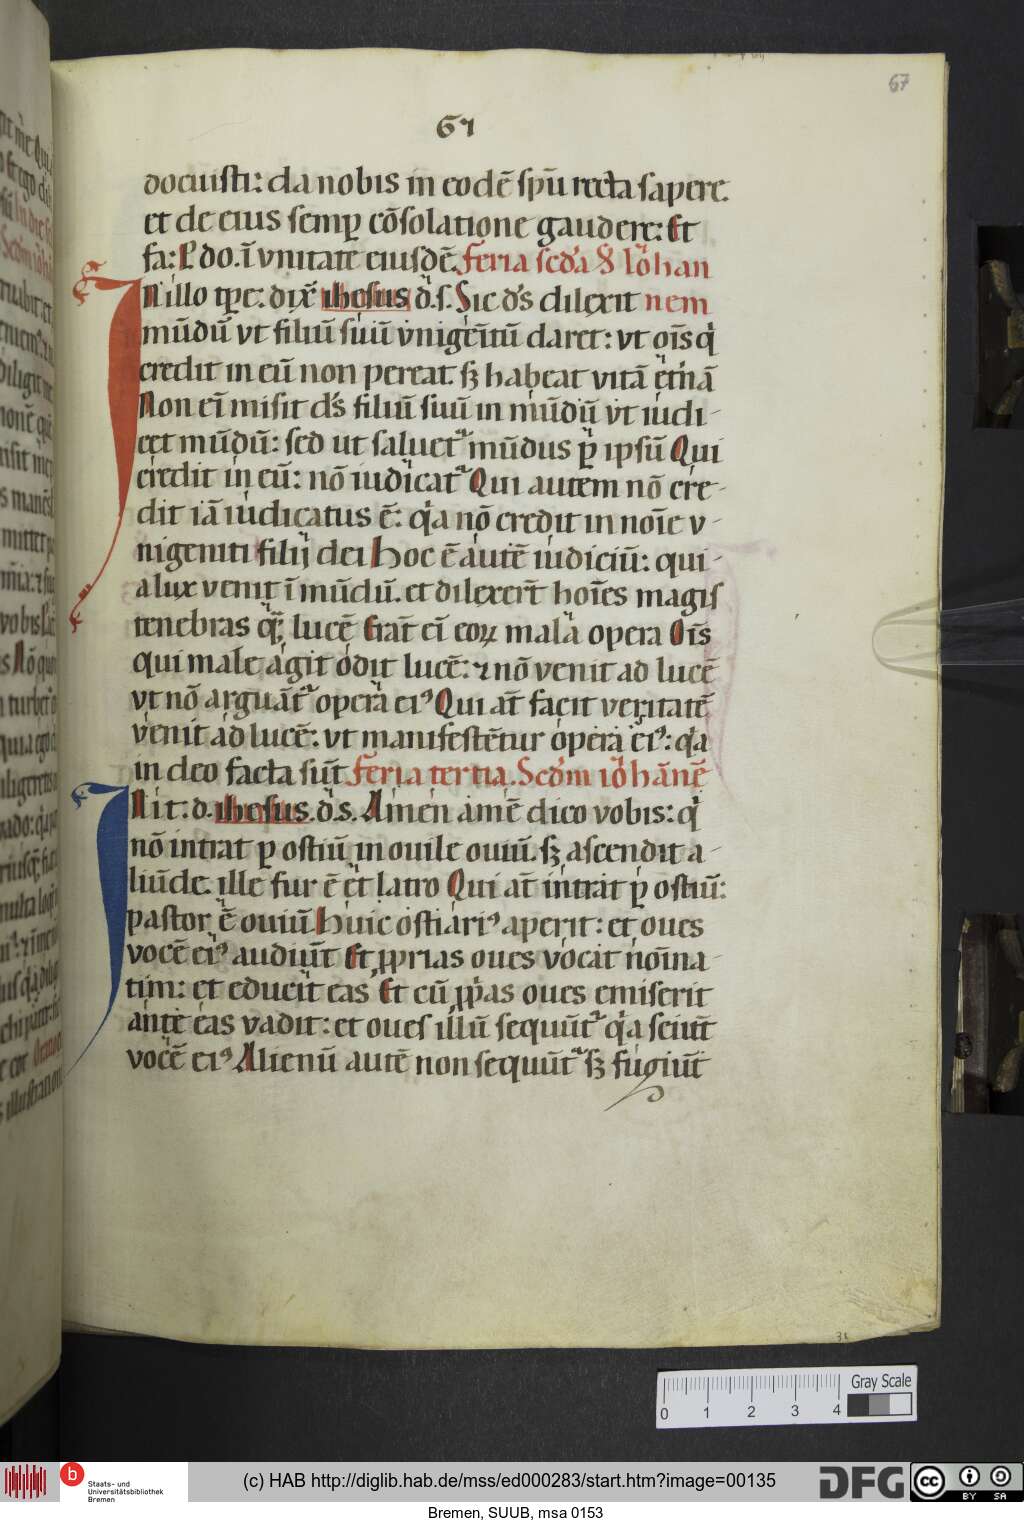 67
67
docuisti: da nobis in eodē spū recta sapere.
et de eius semp cōsolatione gaudere: Et
fa: P do. ī vnitate eiusdē. feria scd'a S Iohan
IN illo tpe: dix̄ ihesus d. s. Sic d's dilexit nem
mūdū vt filiū suū vnigeītū daret: vt oīs q
credit in eū non pereat. sꝫ habeat vitā et'nā
Non eī misit d's filiū suū in mūdū vt iudi-
cet mūdū: sed ut saluet' mūdus p ipsū Qui
credit in eū: nō iudicat' Qui autem nō cre-
dit iā iudicatus ē: qa nō credit in noīe v-
nigeniti filij dei Hoc ē autē iudiciū: qui-
a lux venit ī mūdū. et dilexert̄ hoīes magis
tenebras qꝫ lucē Erāt eī eoꝝ mala opera Oīs
qui male agit odit lucē: ⁊ nō venit ad lucē
vt nō arguāt' opera ei⁹ Qui at̄ facit veritatē
venit ad lucē: vt manifestētur opera ei⁹: qa
in deo facta sūt feria tertia. Scdm iohānē
IN it: d. ihesus. d. s. Amen amē dico vobis: q
nō intrat p ostiū in ouile ouiū. sꝫ ascendit a-
liūde. ille fur ē et latro Qui at̄ intrat p ostiū:
pastor ē ouiū Huic ostiari⁹ aperit: et oues
vocē ei⁹ audiūt Et pprias oues vocat noīna-
tim: et educit eas Et cū ppas oues emiserit
ante eas vadit: et oues illū sequūt' qa sciūt
vocē ei⁹ Alienū autē non sequūt' sꝫ fugiūt
Gray Scale
0 1 2 3 4
b Staats- und
Universitätsbibliothek
Bremen
(c) HAB http://diglib.hab.de/mss/ed000283/start.htm?image=00135
DFG
cc BY SA
Bremen, SUUB, msa 0153